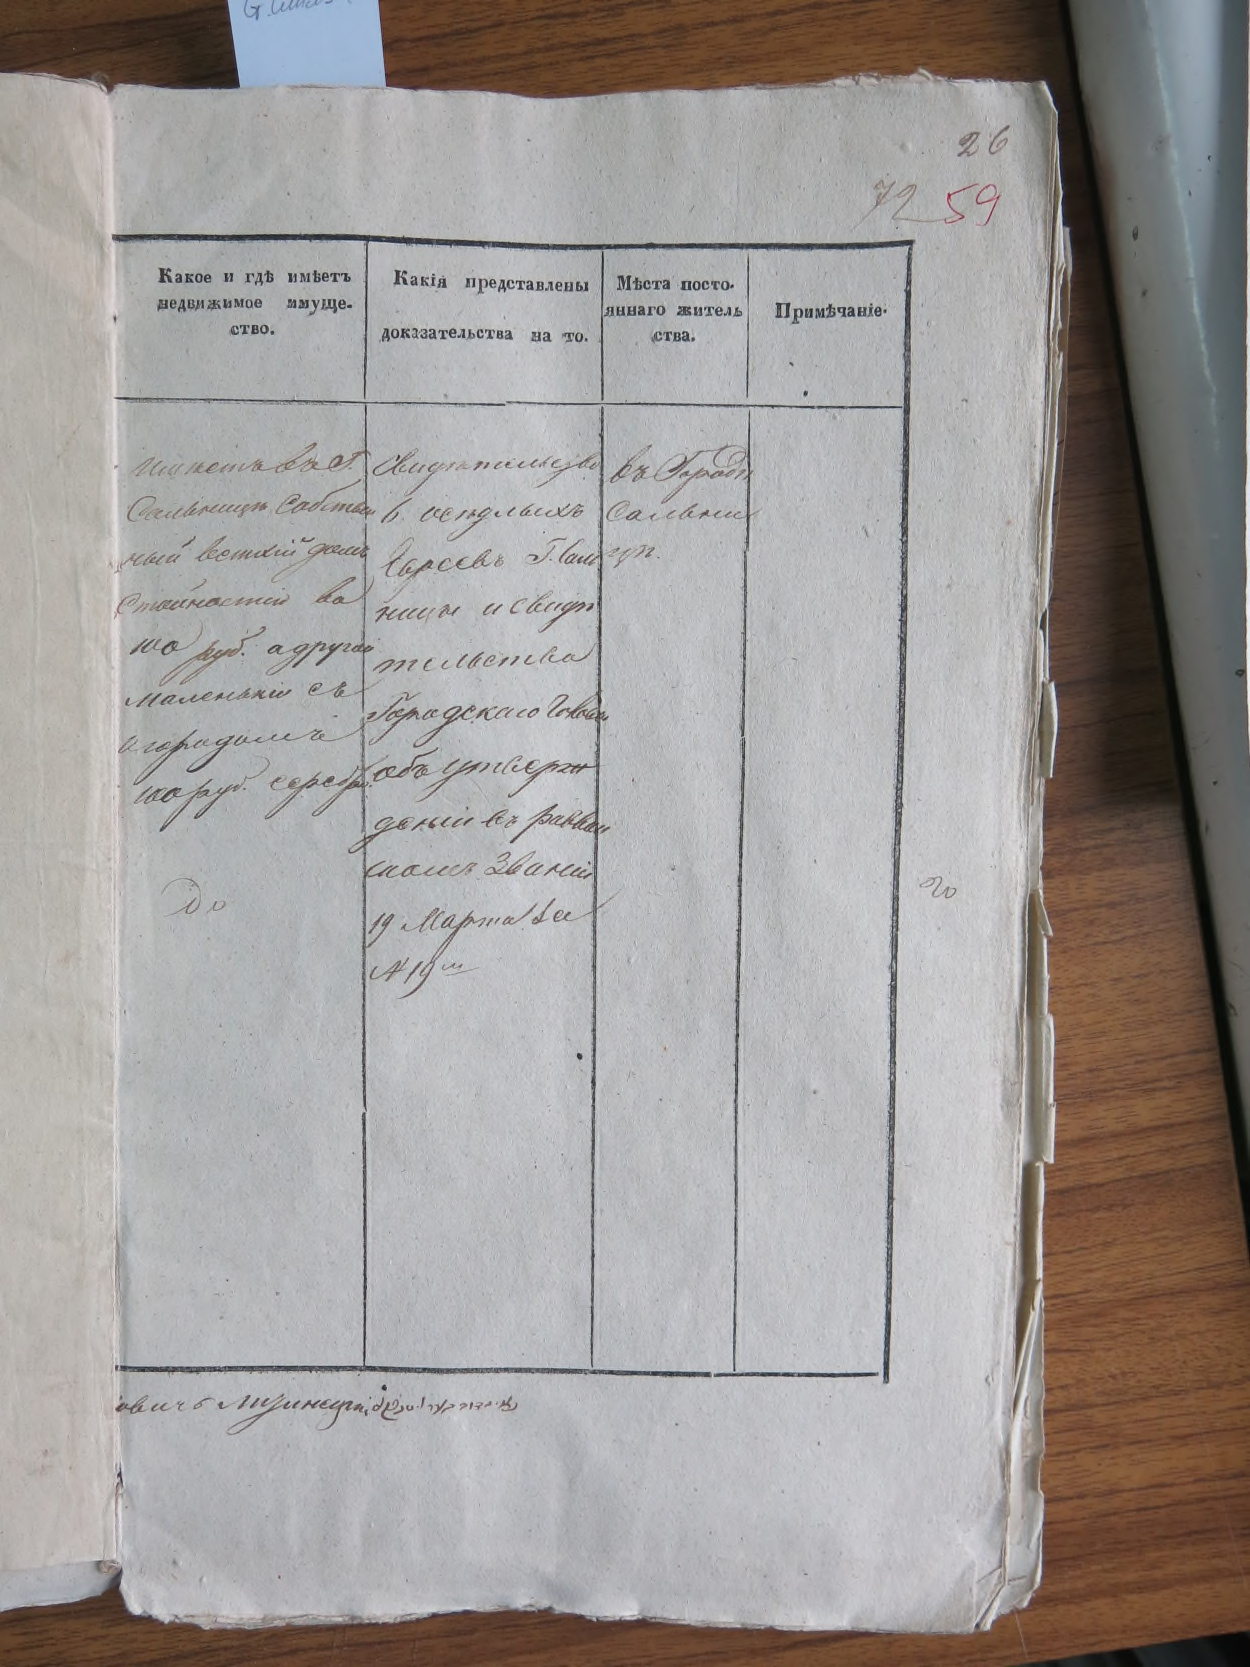 26
72 59
Какое и гдѣ имѣетъ
недвижимое имуще-
ство.
Какія представлены
доказательства на то.
Мѣста посто-
яннаго житель
ства.
Примѣчаніе.
имѣетъ въ Г.
Сальницѣ собствен
ный ветхій домъ
стойностію во
100 руб. а другой
маленькій съ
огородомъ
100 руб. серебр.
До
Свидѣтельство
6 осѣдлыхъ
Евреевъ Г. Саль
ницы и свидѣ
тельство
Городскаго
объ утверж
деніи въ раввин
скомъ званіи
19 Марта за
№ 19м
въ Городѣ
Сальни
цѣ.
го
овичъ